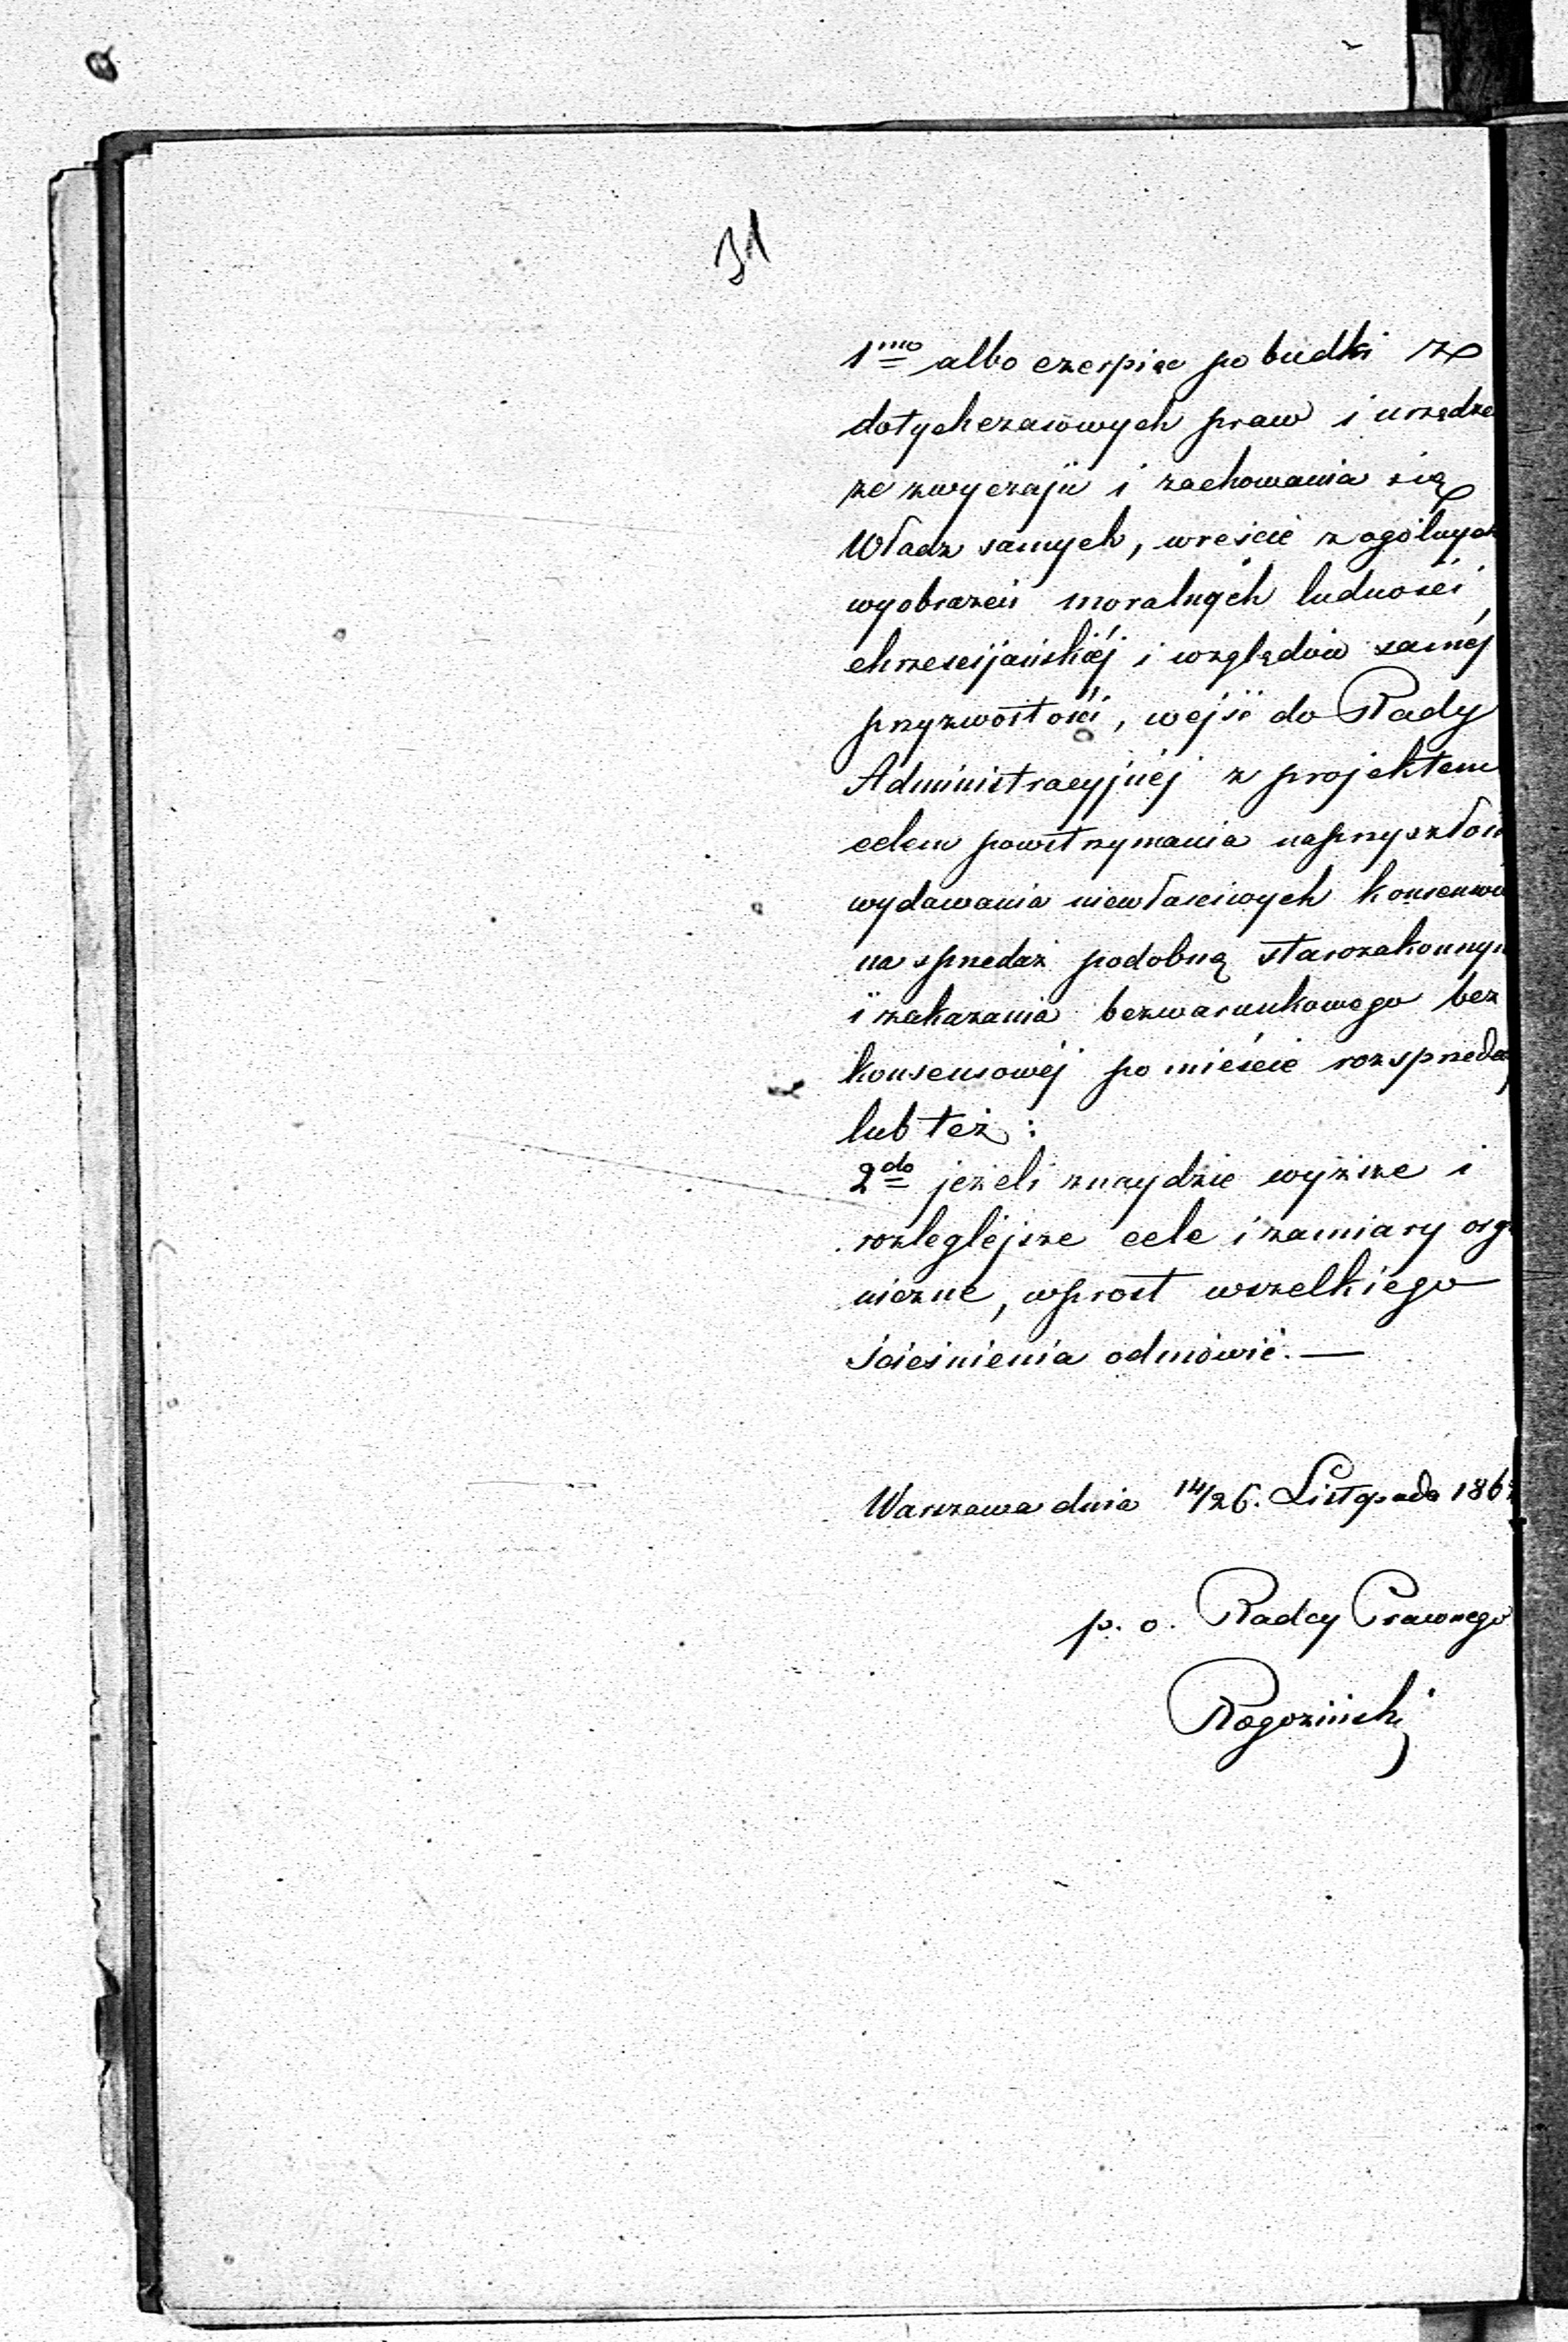 31
1mo albo czerpiąc pobudki z
dotychczasowych praw i urządze
ze zwyczaju i zachowania się
Władz samych, wreście z ogólnych
wyobrażeń moralnych ludności
chrześcijańskiéj i względów saméj
przyzwoitości, wejść do Rady
Administracyjnéj z projektem
celem powstrzymania naprzyszłość
wydawania niewłaściwych konsensów
na sprzedaż podobną starozakonnym
i zakazania bezwarunkowego bez
konsensowéj po mieście rozsprzeda
lub też:
2do jeżeli znaydzie wyższe i
rozleglejsze cele i zamiary orga
niczne, wprost wszelkiego
ścieśnienia odmówić. —
Warszawa dnia 14/26. Listopada 186
p. o. Radcy Prawnego
Rogoziński